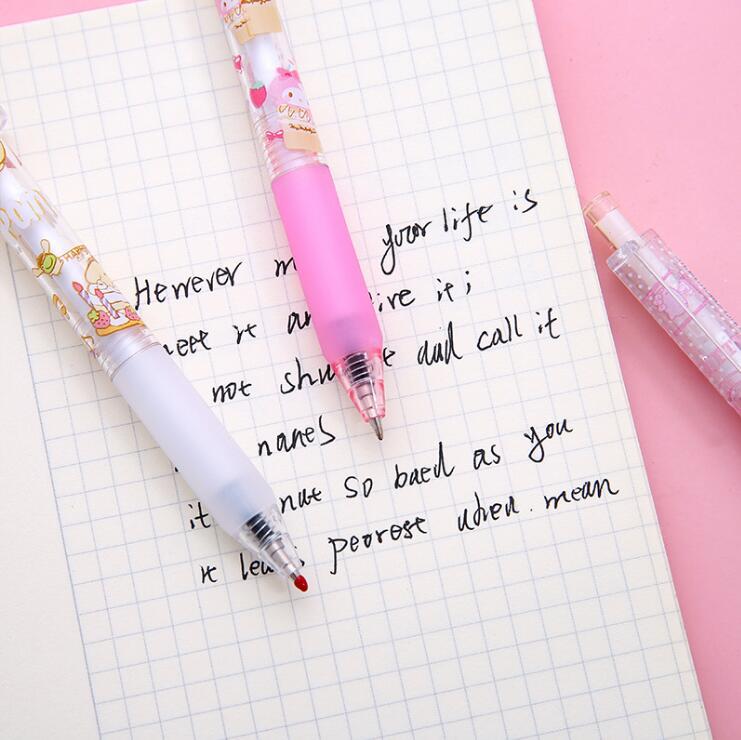 Herrever m your life is
neet it an live it;
not shu e and call it
nanes
it nut so baed as you
it lea peorest when. mean